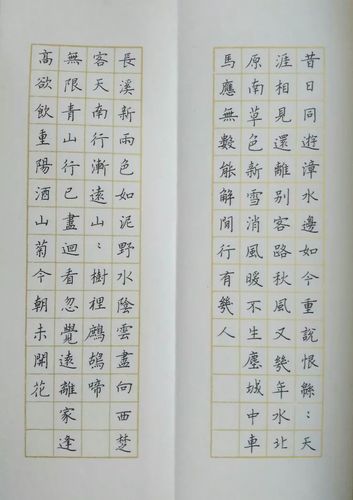 昔日同遊漳水邊如今重說恨緜：天
涯相見還離別客路秋風又幾年水北
原南草色新雪消風暖不生塵城中車
馬應無數能解閒行有幾人
長溪新雨色如泥野水陰雲盡向西楚
客天南行漸遠山：樹裡鷓鴣啼
無限青山行已盡迴看忽覺遠離家逢
高欲飲重陽酒山菊今朝未開花